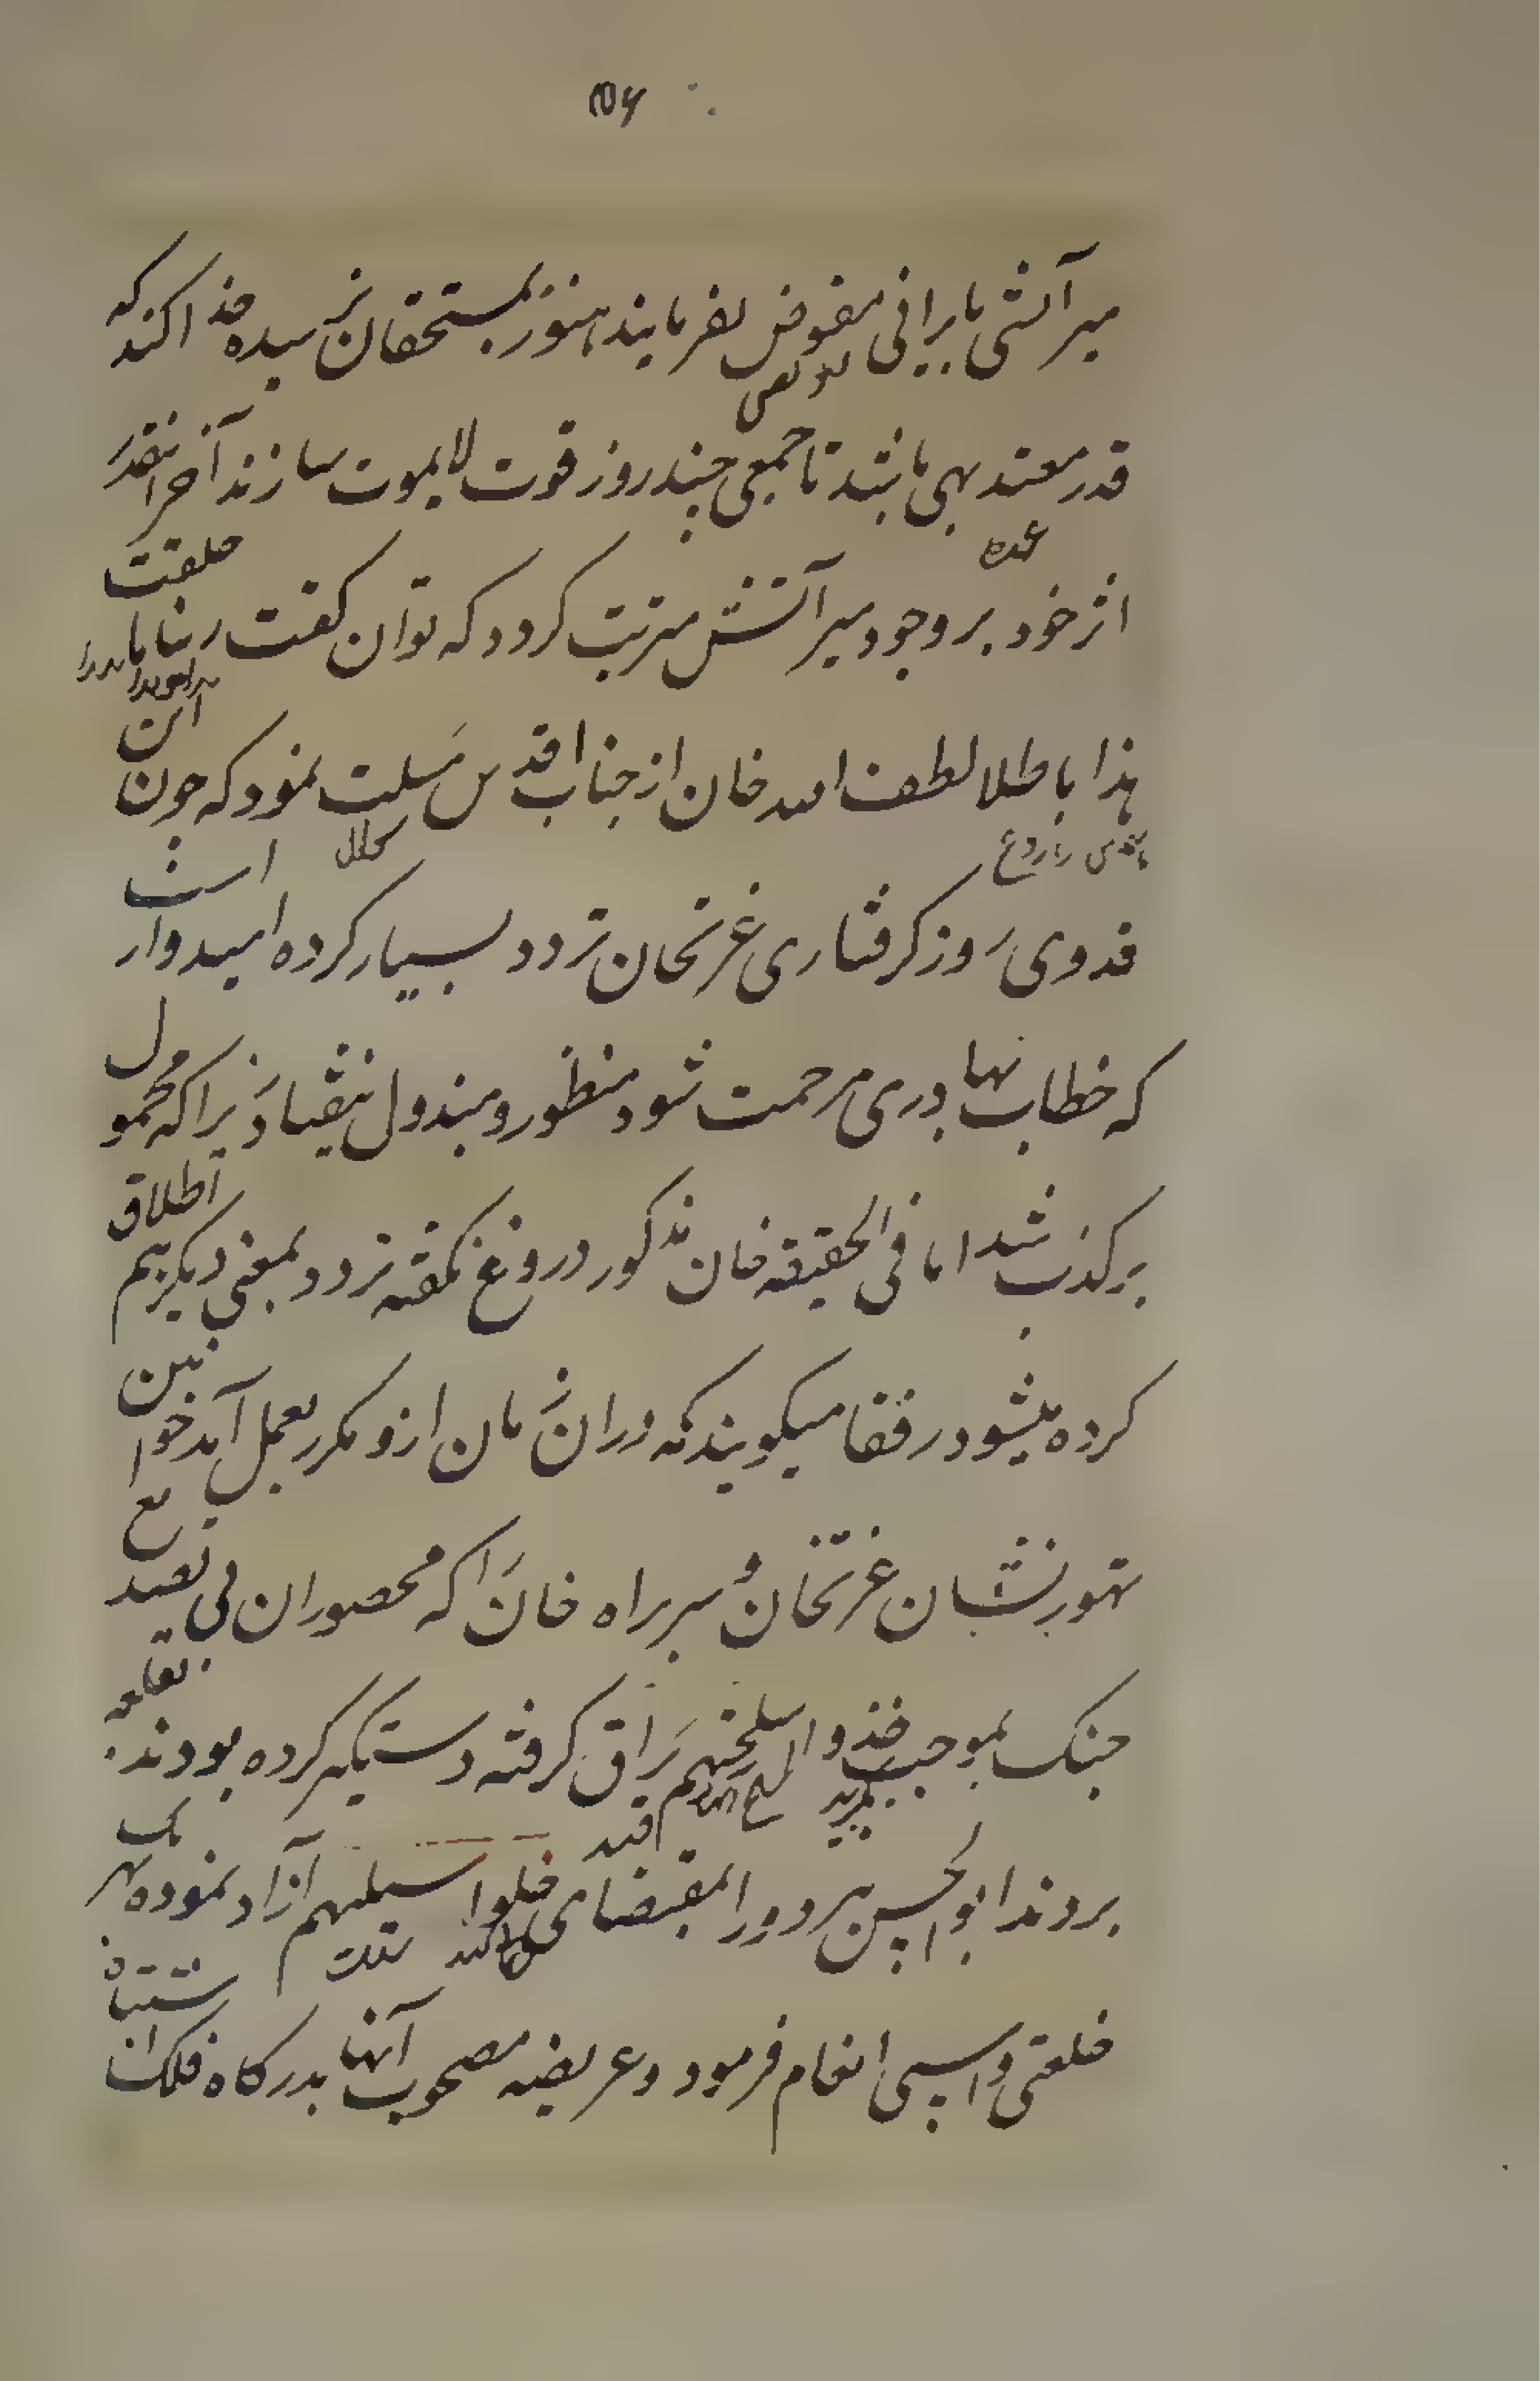 ۱۵۶
میرآتشی بایرانی مفوض بفرمایند هنوز بمستحقان نرسیده خدا کند که
قدر معتد بهی باشد تا جمعی چند روز قوت لایموت سازند آخر اینقدر
عمده
اثر خود بر وجود میرآتش مترتب کردد که توان کفت ربنا ما خلقت
هذا باطلا لطف الله خان از جناب اقدس مسلت نمود که چون این
فدوی روز کرفتاری غرتخان تردد بسیار کرده امیدوار است
که خطاب بهادری مرحمت شود منظور و مبذول نیفتاد زیرا که محمول
بر کذب شد اما فی الحقیقه خان مذکور دروغ نکفته تردد بمعنی دیکر هم اطلاق
کرده میشود رفقا میکویند که دران زمان ازو مکرر بعمل آمد خوانین
تهور نشان غرتخان و سربراه خان را که محصوران بی تصدیع
جنک بموجب خذوا اسلحتهم یراق کرفته دستکیر کرده بودند بقلعه
بکیرید
بردند ابوالحسن هر دو را بمقتضای فخلوا سبیلهم از قید آزاد نموده بهر یک
خلعتی و اسپی انعام فرمود و عریضه مصحوب آنها بدرکاه فلک اشتباه